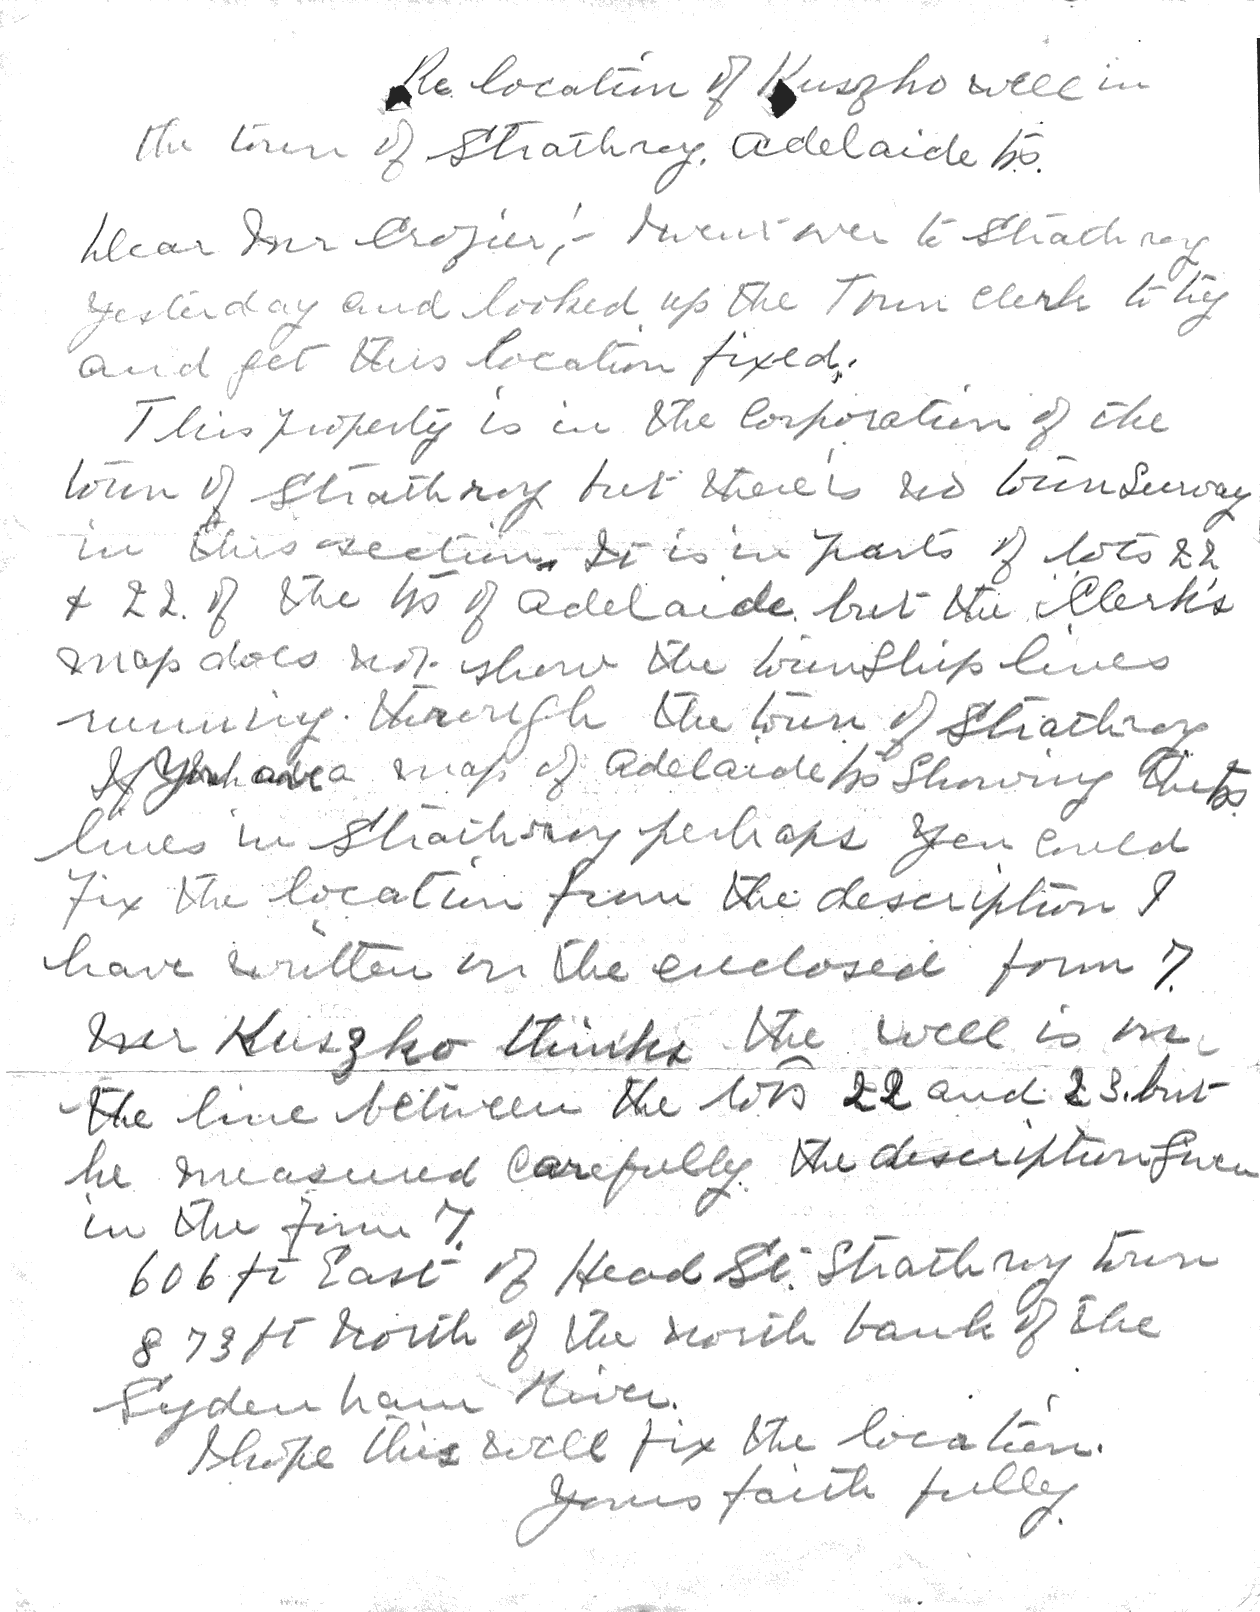 Re location of Kuszko well in
the town of Strathroy. Adelaide tp.
Dear Mr Crozier,- I went over to Strathroy
yesterday and looked up the Town Clerk to try
and get this location fixed.
This property is in the Corporation of the
town of Strathroy but there's no town Survay
in this section. It is in parts of lots 22
& 22. of the tp of Adelaide but the Clerk's
map does not show the township lines
running through the town of Strathroy
If You have a map of Adelaide tp Showing the tp.
lines in Strathroy perhaps you could
fix the location from the description I
have written on the enclosed form 7.
Mr Kuszko thinks the well is on
the line between the lots 22 and 23. but
he measured Carefully the description Given
in the form 7.
606 ft East of Head St. Strathroy town
873 ft North of the north bank of the
Sydenham River.
I hope this will fix the location.
Yours faith fully.